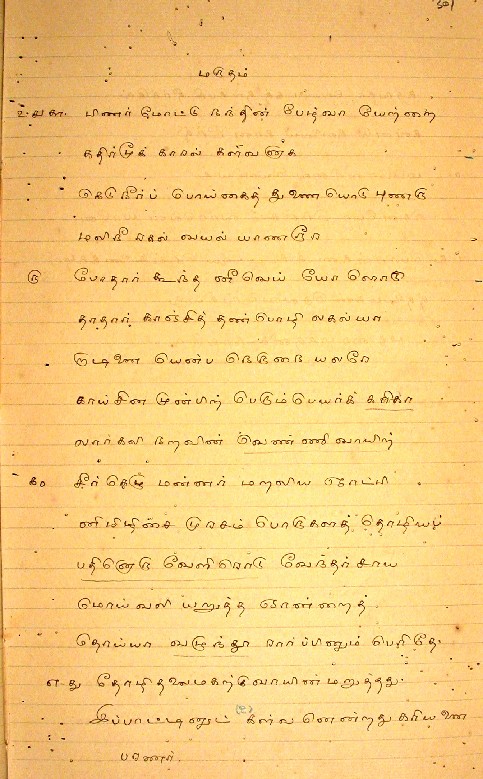 மருதம்
௨௪௬. பிணர் மோட்டு நந்தின் பேழ்வா யேற்றை
கதிர்மூக் காரல் களவனாக
நெடுநீர்ப் பொய்கைத் துணையொடு புணரு
மலிநீ ரகல் வயல் யாணரூர
௫ போதார் கூந்த னீவெய் யோளொடு
தாதார் காஞ்சித் தண்பொழி லகல்யா
றாடினை யென்ப நெருநை யலரே
காய்சின முன்பிற் பெரும்பெயர்க் கரிகா
லார்கலி நறவின் வெண்ணிவாயிற்
௧௦ சீர்கெழு மன்னர் மறலிய ஞாட்பி
னிமிழிசை முரசம் பொருகளத் தொழியப்
பதினொரு வேளிரொடு வேந்தர் சாய
மொய்வலி யறுத்த ஞான்றைத்
தொய்யா வழுந்தூ ரார்ப்பினும் பெரிதே.
எ-து தோழி தலைமகற்கு வாயின்மறுத்தது.
இப்பாட்டினுட் களவனென்றது
பரணர்.